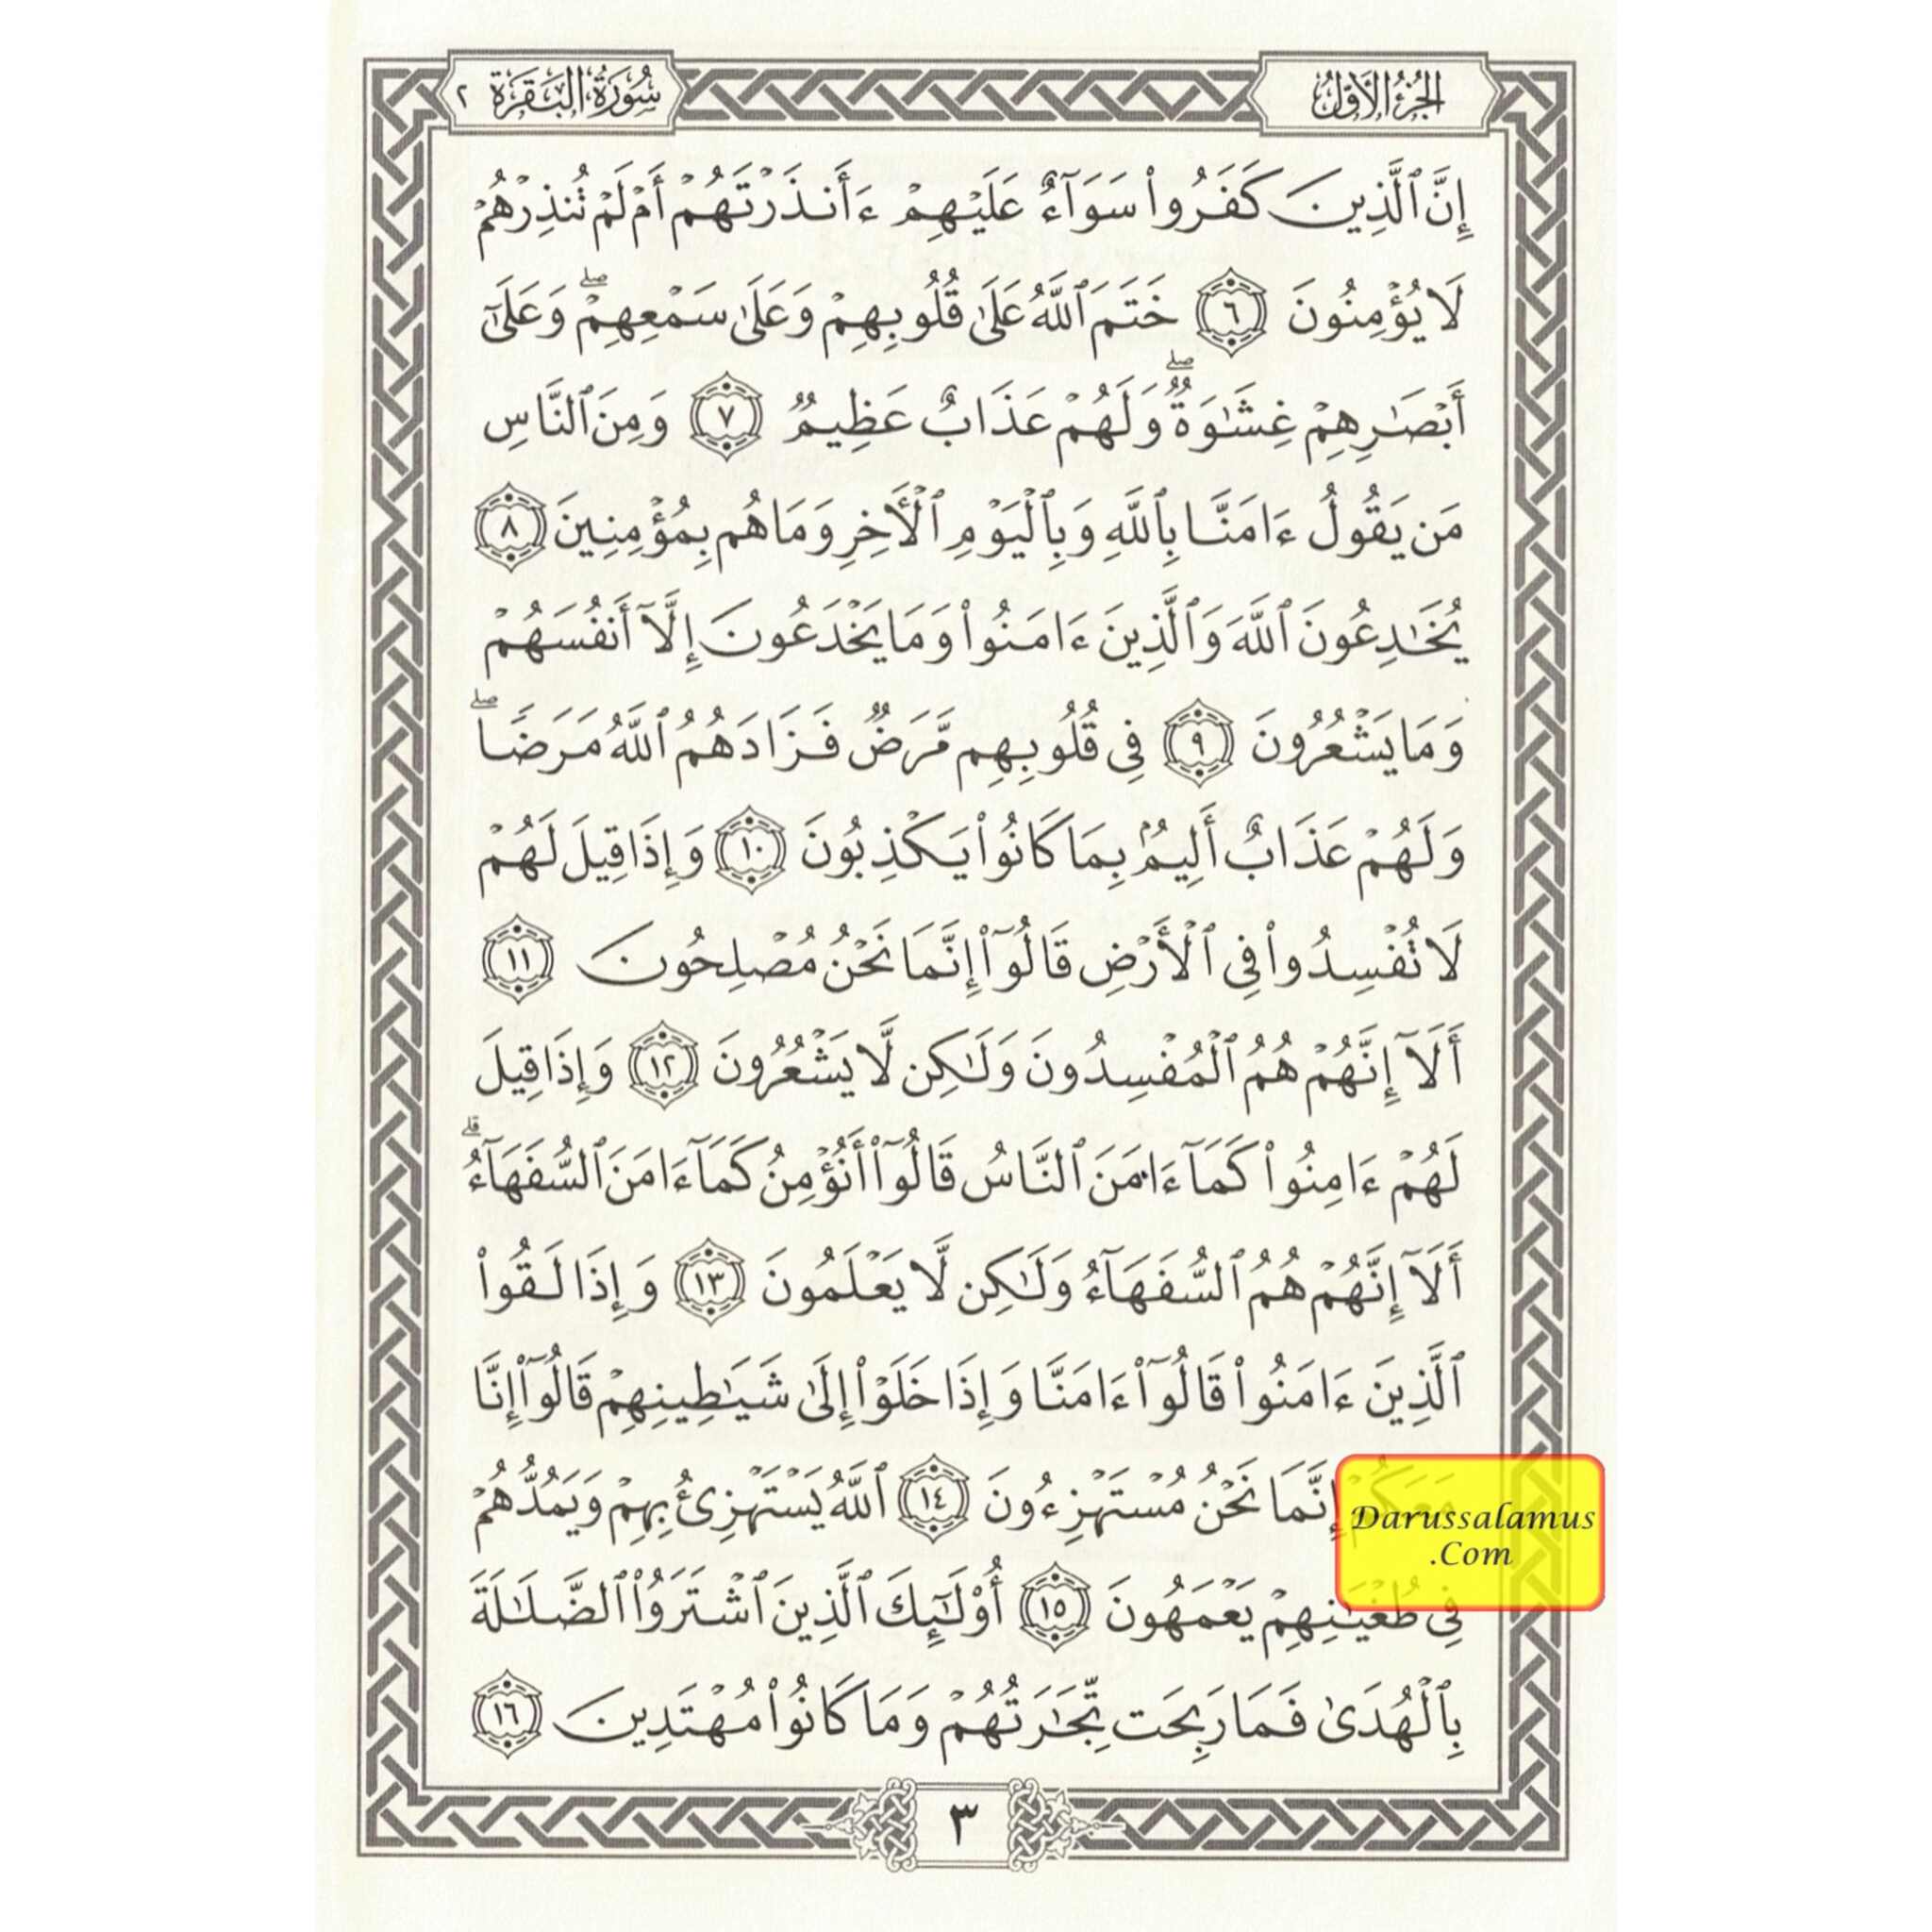 الجزء الأول
سورة البقرة ٢
إِنَّ ٱلَّذِينَ كَفَرُوا۟ سَوَآءٌ عَلَيْهِمْ ءَأَنذَرْتَهُمْ أَمْ لَمْ تُنذِرْهُمْ
لَا يُؤْمِنُونَ ٦ خَتَمَ ٱللَّهُ عَلَىٰ قُلُوبِهِمْ وَعَلَىٰ سَمْعِهِمْ ۖ وَعَلَىٰٓ
أَبْصَـٰرِهِمْ غِشَـٰوَةٌ ۖ وَلَهُمْ عَذَابٌ عَظِيمٌ ٧ وَمِنَ ٱلنَّاسِ
مَن يَقُولُ ءَامَنَّا بِٱللَّهِ وَبِٱلْيَوْمِ ٱلْأَخِرِ وَمَا هُم بِمُؤْمِنِينَ ٨
يُخَـٰدِعُونَ ٱللَّهَ وَٱلَّذِينَ ءَامَنُوا۟ وَمَا يَخْدَعُونَ إِلَّآ أَنفُسَهُمْ
وَمَا يَشْعُرُونَ ٩ فِى قُلُوبِهِم مَّرَضٌ فَزَادَهُمُ ٱللَّهُ مَرَضًا ۖ
وَلَهُمْ عَذَابٌ أَلِيمٌۢ بِمَا كَانُوا۟ يَكْذِبُونَ ١٠ وَإِذَا قِيلَ لَهُمْ
لَا تُفْسِدُوا۟ فِى ٱلْأَرْضِ قَالُوٓا۟ إِنَّمَا نَحْنُ مُصْلِحُونَ ١١
أَلَآ إِنَّهُمْ هُمُ ٱلْمُفْسِدُونَ وَلَـٰكِن لَّا يَشْعُرُونَ ١٢ وَإِذَا قِيلَ
لَهُمْ ءَامِنُوا۟ كَمَآ ءَامَنَ ٱلنَّاسُ قَالُوٓا۟ أَنُؤْمِنُ كَمَآ ءَامَنَ ٱلسُّفَهَآءُ ۗ
أَلَآ إِنَّهُمْ هُمُ ٱلسُّفَهَآءُ وَلَـٰكِن لَّا يَعْلَمُونَ ١٣ وَإِذَا لَقُوا۟
ٱلَّذِينَ ءَامَنُوا۟ قَالُوٓا۟ ءَامَنَّا وَإِذَا خَلَوْا۟ إِلَىٰ شَيَـٰطِينِهِمْ قَالُوٓا۟ إِنَّا
مَعَكُمْ إِنَّمَا نَحْنُ مُسْتَهْزِءُونَ ١٤ ٱللَّهُ يَسْتَهْزِئُ بِهِمْ وَيَمُدُّهُمْ
Darussalamus
.Com
فِى طُغْيَـٰنِهِمْ يَعْمَهُونَ ١٥ أُو۟لَـٰٓئِكَ ٱلَّذِينَ ٱشْتَرَوُا۟ ٱلضَّلَـٰلَةَ
بِٱلْهُدَىٰ فَمَا رَبِحَت تِّجَـٰرَتُهُمْ وَمَا كَانُوا۟ مُهْتَدِينَ ١٦
٣